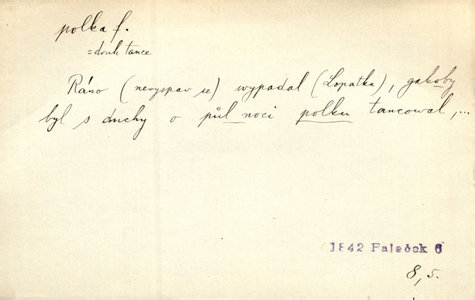 polka f.
= druh tance
Ráno (nevyspav se) wypadal (Lopatka), gakoby
byl s duchy o půl noci polku tancowal,...
1842 Paleček 6
8, 5.